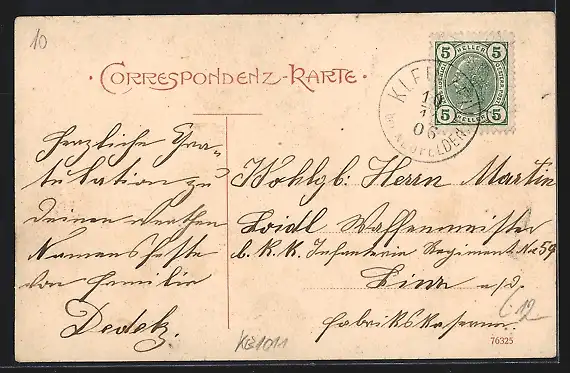 10
CORRESPONDENZ-KARTE.
5 HELLER 5
5 HELLER 5
10
06
NEUFELDEN
Herzliche Gra-
tulation zu
Deinem werthen
Namensfeste
von Familie
Dedek.
Wohlgb: Herrn Martin
Loidl Waffenmeister
b. K. K. Infanterie Regiment No 59
Linz a/d.
Fabrikskaserne.
12
76325